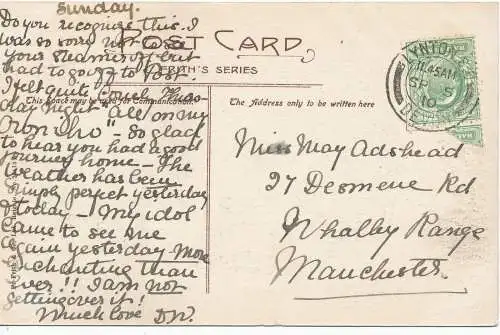 Sunday.
Do you recognise this. I
was so sorry not to see
your steamer off but
had to go off to Post.
I felt quite Thurs-
day night "all on my
own tho" - so glad
to hear you had a good
journey home - The
weather has been
simply perfect yesterday
& today - My idol
came to see me
again yesterday - More
enchanting than
ever!! I am not
getting over it!
Much love
POST CARD
FRITH'S SERIES
This Space may be used for Communication.
The Address only to be written here
LYNTON
11.45 AM
SP 5
10
Miss May Adshead
27 Desmene Rd
Whalley Range
Manchester.